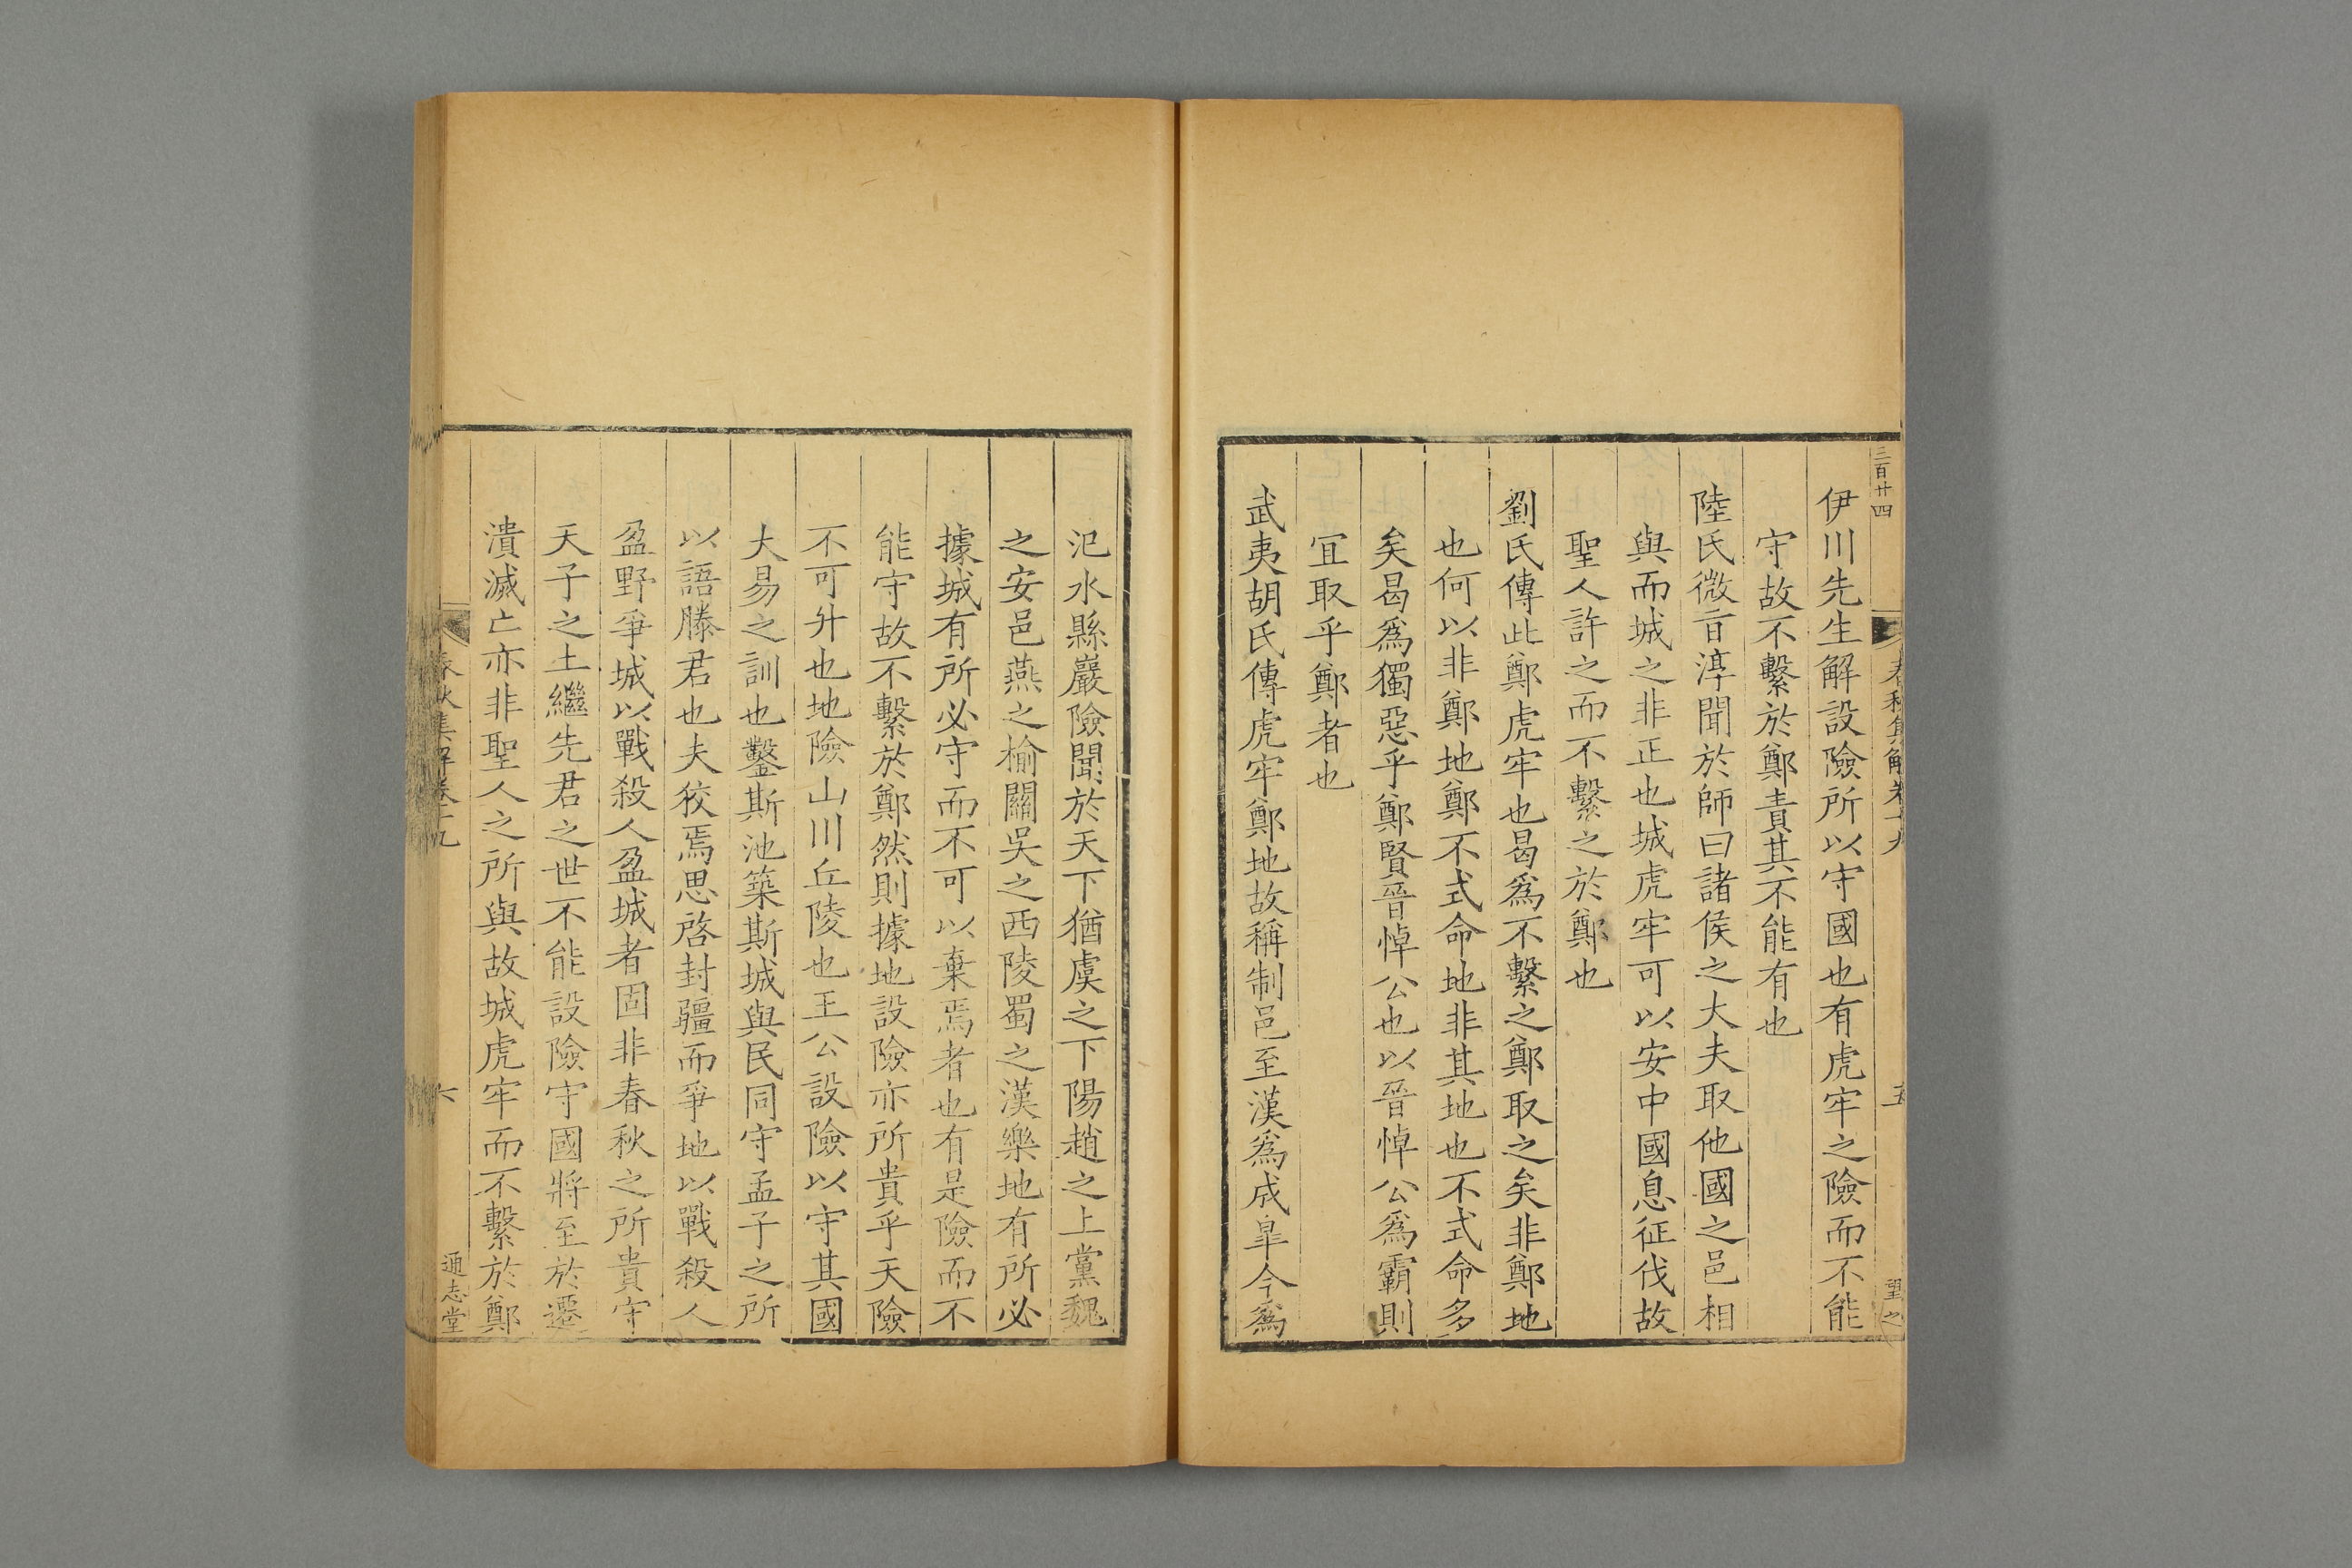 三百廿四
春秋集解卷十九
五
伊川先生解設險所以守國也有虎牢之險而不能
守故不繫於鄭責其不能有也
陸氏微㫖淳聞於師曰諸侯之大夫取他國之邑相
與而城之非正也城虎牢可以安中國息征伐故
聖人許之而不繫之於鄭也
劉氏傳此鄭虎牢也曷爲不繫之鄭取之矣非鄭地
也何以非鄭地鄭不式命地非其地也不式命多
矣曷爲獨惡乎鄭賢晉悼公也以晉悼公爲霸則
宜取乎鄭者也
武夷胡氏傳虎牢鄭地故稱制邑至漢爲成皐今爲
汜水縣巖險聞於天下猶虞之下陽趙之上黨魏
之安邑燕之榆關吳之西陵蜀之漢樂地有所必
據城有所必守而不可以棄焉者也有是險而不
能守故不繫於鄭然則據地設險亦所貴乎天險
不可升也地險山川丘陵也王公設險以守其國
大易之訓也鑿斯池築斯城與民同守孟子之所
以語滕君也夫狡焉思啓封疆而爭地以戰殺人
盈野爭城以戰殺人盈城者固非春秋之所貴守
天子之土繼先君之世不能設險守國將至於遷
潰滅亡亦非聖人之所與故城虎牢而不繫於鄭
春秋集解卷十九
六
通志堂